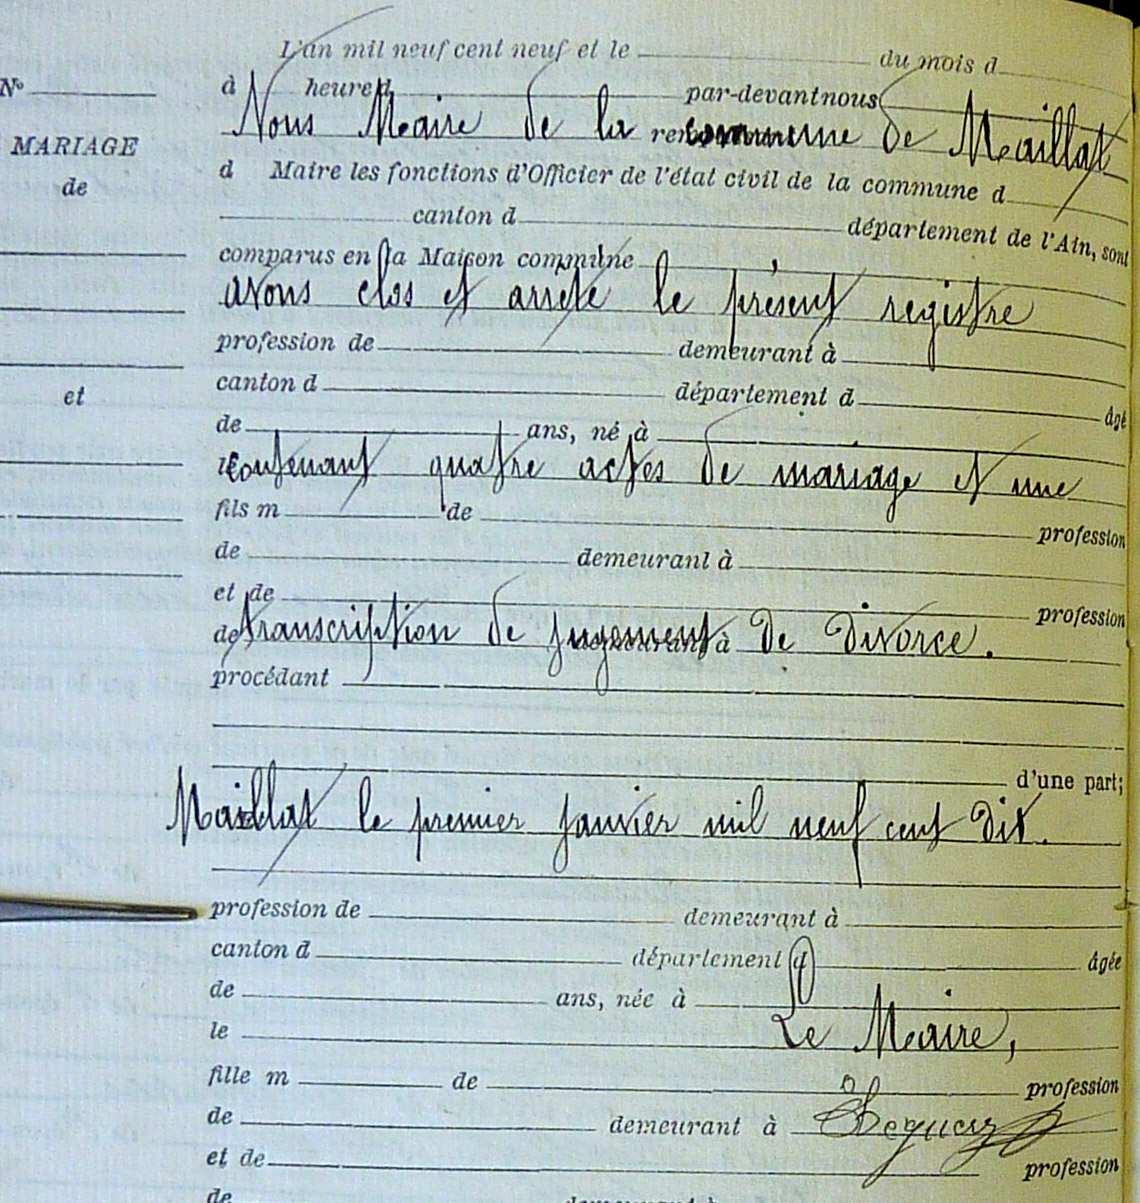 L'an mil neuf cent neuf et le du mois d
N° à heure d par-devant nous
Nous Maire de la commune de Maillat
MARIAGE
d Maire les fonctions d'Officier de l'état civil de la commune d
de
canton d département de l'Ain, sont
comparus en la Maison commune
avons clos et arrêté le présent registre
profession de demeurant à
canton d département d âgé
et
de ans, né à
le contenant quatre actes de mariage et une
fils m de profession
de demeurant à
et de profession
de transcription de jugement à de divorce.
procédant
d'une part;
Maillat le premier janvier mil neuf cent dix.
profession de demeurant à
canton d département d âgée
de ans, née à
le Le Maire,
fille m de profession
de demeurant à
et de profession
de demeurant à